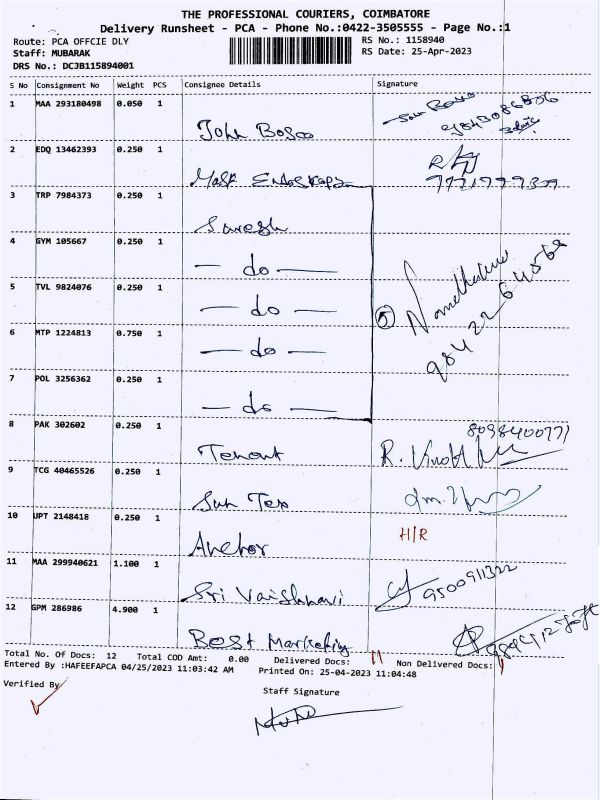 THE PROFESSIONAL COURIERS, COIMBATORE
Delivery Runsheet - PCA - Phone No.:0422-3505555 - Page No.:1
Route: PCA OFFCIE DLY
RS No.: 1158940
Staff: MUBARAK
RS Date: 25-Apr-2023
DRS No.: DCJB115894001
S No Consignment No Weight PCS Consignee Details Signature
1 MAA 293180498 0.050 1
John Bosco
2 EDQ 13462393 0.250 1
3 TRP 7984373 0.250 1
Suresh
4 GYM 105667 0.250 1
— do —
5 TVL 9824076 0.250 1
— do —
6 MTP 1224813 0.750 1
— do —
7 POL 3256362 0.250 1
— do —
8 PAK 302602 0.250 1
9 TCG 40465526 0.250 1
Sun Tex
10 UPT 2148418 0.250 1
Anchor H/R
11 MAA 299940621 1.100 1
Sri Vaishnavi
12 GPM 286986 4.900 1
Best Marketing
Total No. Of Docs: 12 Total COD Amt: 0.00 Delivered Docs: 11 Non Delivered Docs: 1
Entered By :HAFEEFAPCA 04/25/2023 11:03:42 AM Printed On: 25-04-2023 11:04:48
Verified By
Staff Signature